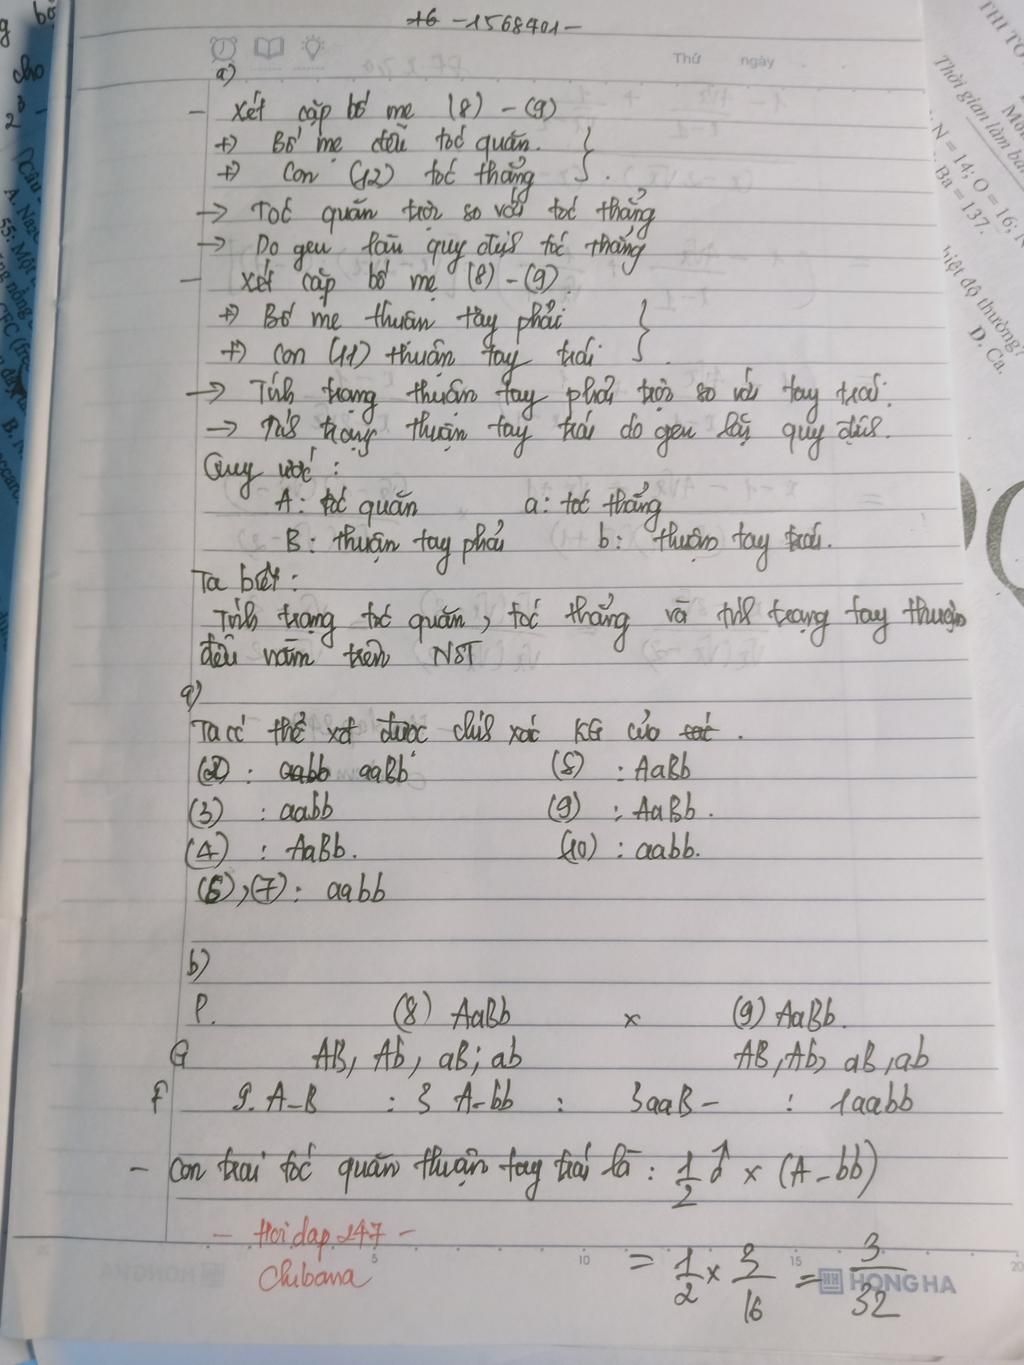 16 - 1568401 -
Thứ ngày
a)
- Xét cặp bố mẹ (8) - (9)
+) Bố mẹ đều tóc quăn. }
+) Con (12) tóc thẳng } .
-> Tóc quăn trội so với tóc thẳng
-> Do gen lặn quy định tóc thẳng
- Xét cặp bố mẹ (8) - (9)
+) Bố mẹ thuận tay phải }
+) Con (11) thuận tay trái }
-> Tính trạng thuận tay phải trội so với tay trái.
-> Tính trạng thuận tay trái do gen lặn quy định.
Quy ước :
A : tóc quăn a : tóc thẳng
B : thuận tay phải b : thuận tay trái.
Ta biết :
Tính trạng tóc quăn, tóc thẳng và tính trạng tay thuận
đều nằm trên NST
a)
Ta có thể xđ được chính xác KG của các .
(2) : aabb aaBb (8) : AaBb
(3) : aabb (9) : AaBb .
(4) : AaBb. (10) : aabb.
(6), (7) : aabb
b)
P. (8) AaBb x (9) AaBb.
G AB, Ab, aB; ab AB, Ab, aB, ab
F 9. A-B : 3 A-bb : 3aaB- : 1aabb
- Con trai tóc quăn thuận tay trái là : 1/2 ♂ x (A-bb)
- Hoidap247 -
Chibana
= 1/2 x 3/16 = 3/32
5 10 15 20
HONG HA
Thời gian làm bài
N = 14; O = 16;
Ba = 137.
nhiệt độ thường?
D. Ca.